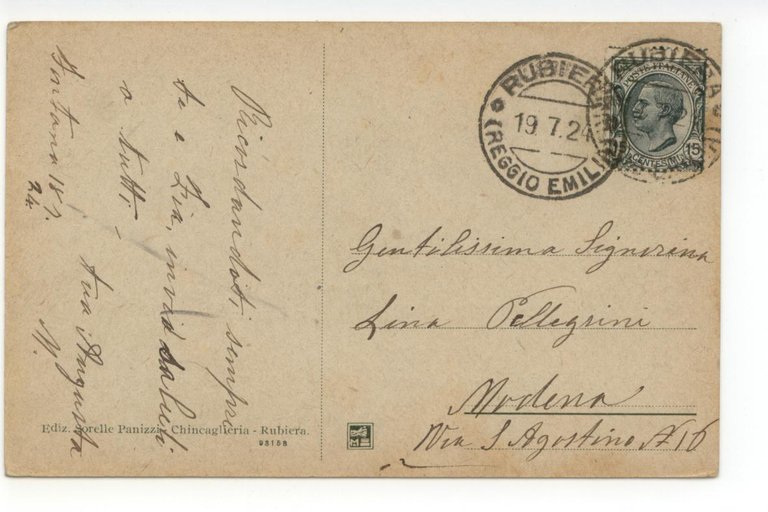 Fontana 18.7.
24.
Ricordandoti sempre
te e Zia, invio saluti
a tutti -
tua Augusta
N.
RUBIERA
19.7.24
(REGGIO EMILIA)
RUBIERA
POSTE ITALIANE
CENTESIMI 15
Gentilissima Signorina
Lina Pellegrini
Modena
Via S Agostino N 16
Ediz. Sorelle Panizzi - Chincaglieria - Rubiera.
98158